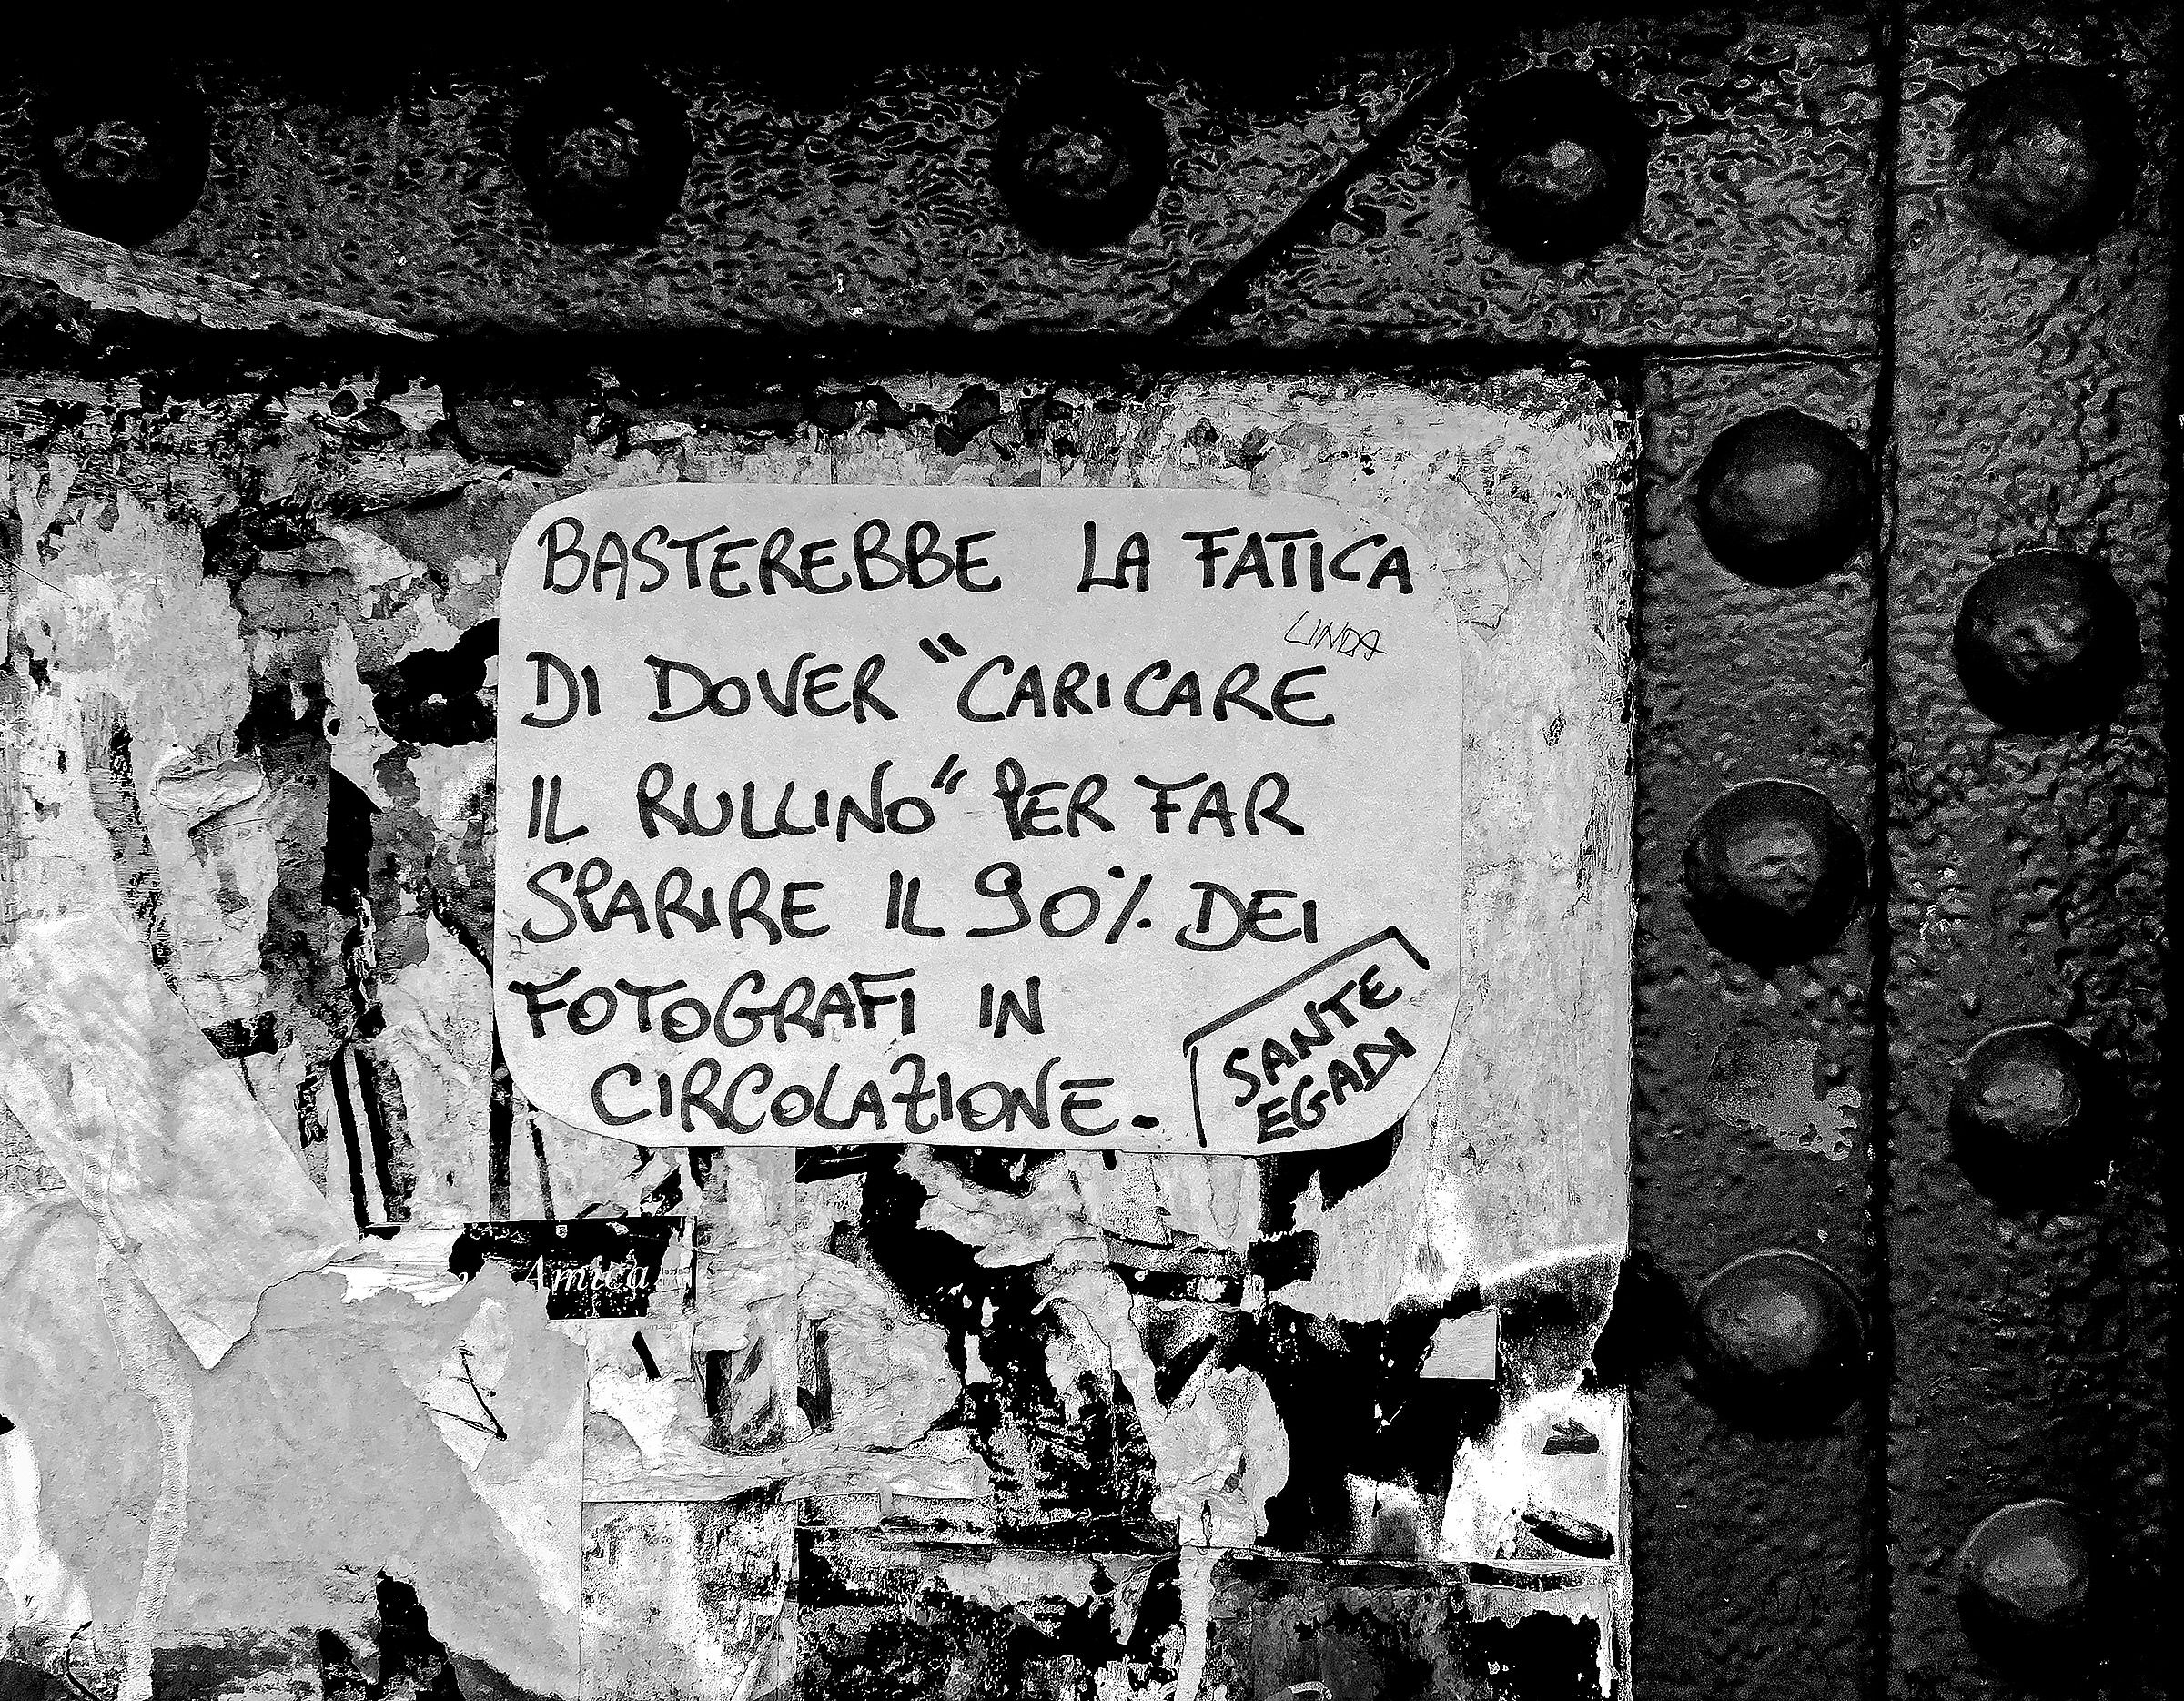 BASTEREBBE LA FATICA
LINDA
DI DOVER "CARICARE
IL RULLINO" PER FAR
SPARIRE IL 90% DEI
FOTOGRAFI IN
CIRCOLAZIONE.
SANTE
EGADI
Amica